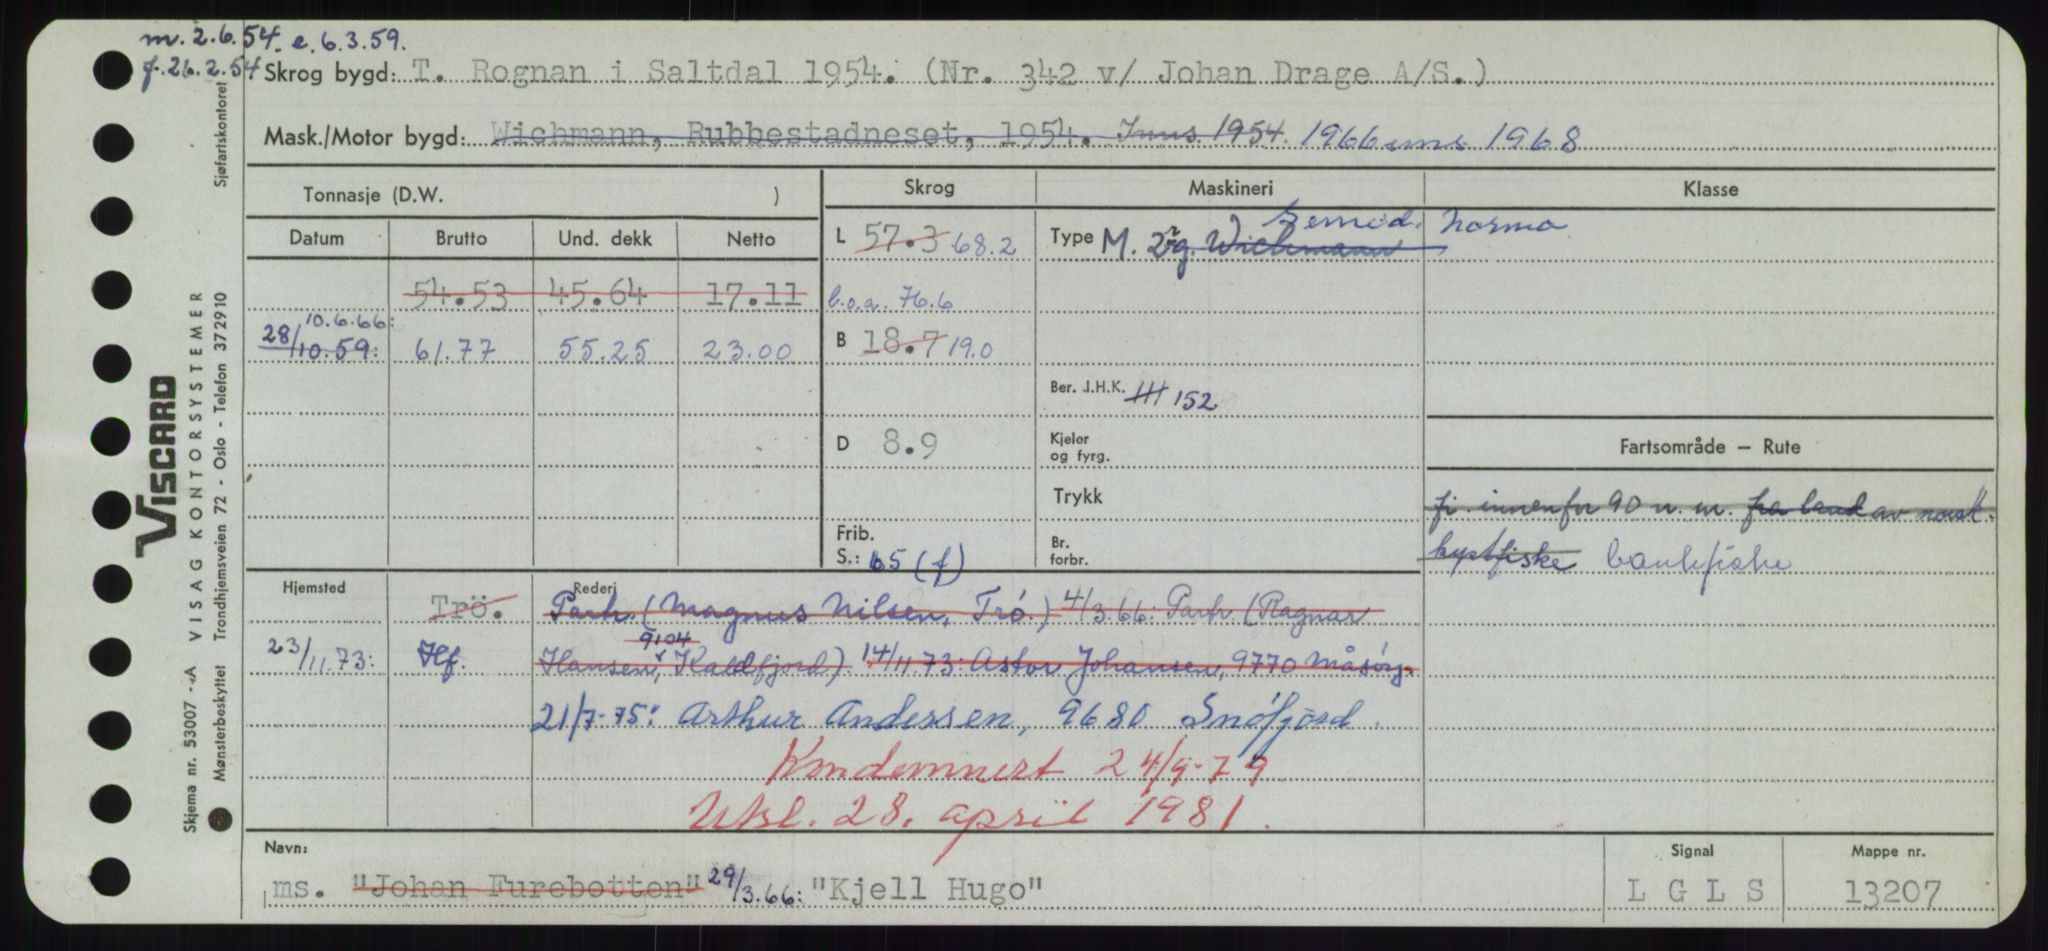 m. 2.6.54. e. 6.3.59.
f. 26.2.54 Skrog bygd: T. Rognan i Saltdal 1954. (Nr. 342 v/ Johan Drage A/S.)
Mask./Motor bygd: Wichmann, Rubbestadneset, 1954. Inns. 1954. 1966 ims 1968
Tonnasje (D.W. ) Skrog Maskineri Klasse
Datum Brutto Und. dekk Netto L 57.3 68.2 Type M. 2 Wichmann Norma
54.53 45.64 17.11 l.o.a. 76.6
10.6.66:
28/10.59: 61.77 55.25 23.00 B 18.7 19.0
Ber. I.H.K. 152
D 8.9 Kjeler og fyrg. Fartsområde – Rute
Trykk fi. innenfor 90 n. m. fra land av norsk.
Frib. S.: 65 (f) Br. forbr. kystfiske bankfiske
Hjemsted Rederi
Trö. Parh. (Magnus Nilsen, Trö.) 4/3.66: Parh (Ragnar
23/11.73: Hf. Hansen, 9104 Kaldfjord) 14/11 73: Astor Johansen, 9770 Måsöy.
21/7-75: Arthur Andersen, 9680 Snöfjord.
Kondemnert 24/9-79
Utsl. 28. april 1981.
Navn: Signal Mappe nr.
ms. "Johan Furebotten" 29/3.66: "Kjell Hugo" L G L S 13207
VISCARD
VISAG KONTORSYSTEMER
Skjema nr. 53007 -A
Mønsterbeskyttet Trondhjemsveien 72 - Oslo - Telefon 372910
Sjøfartskontoret